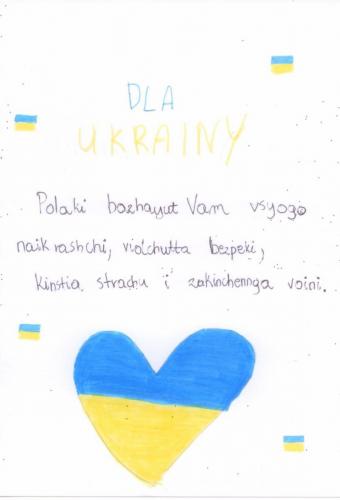 DLA
UKRAINY
Polaki bazhayut Vam vsyogo
naikrashchi, vidchutta bezpeki,
kinstia strachu i zakinchennga voini.